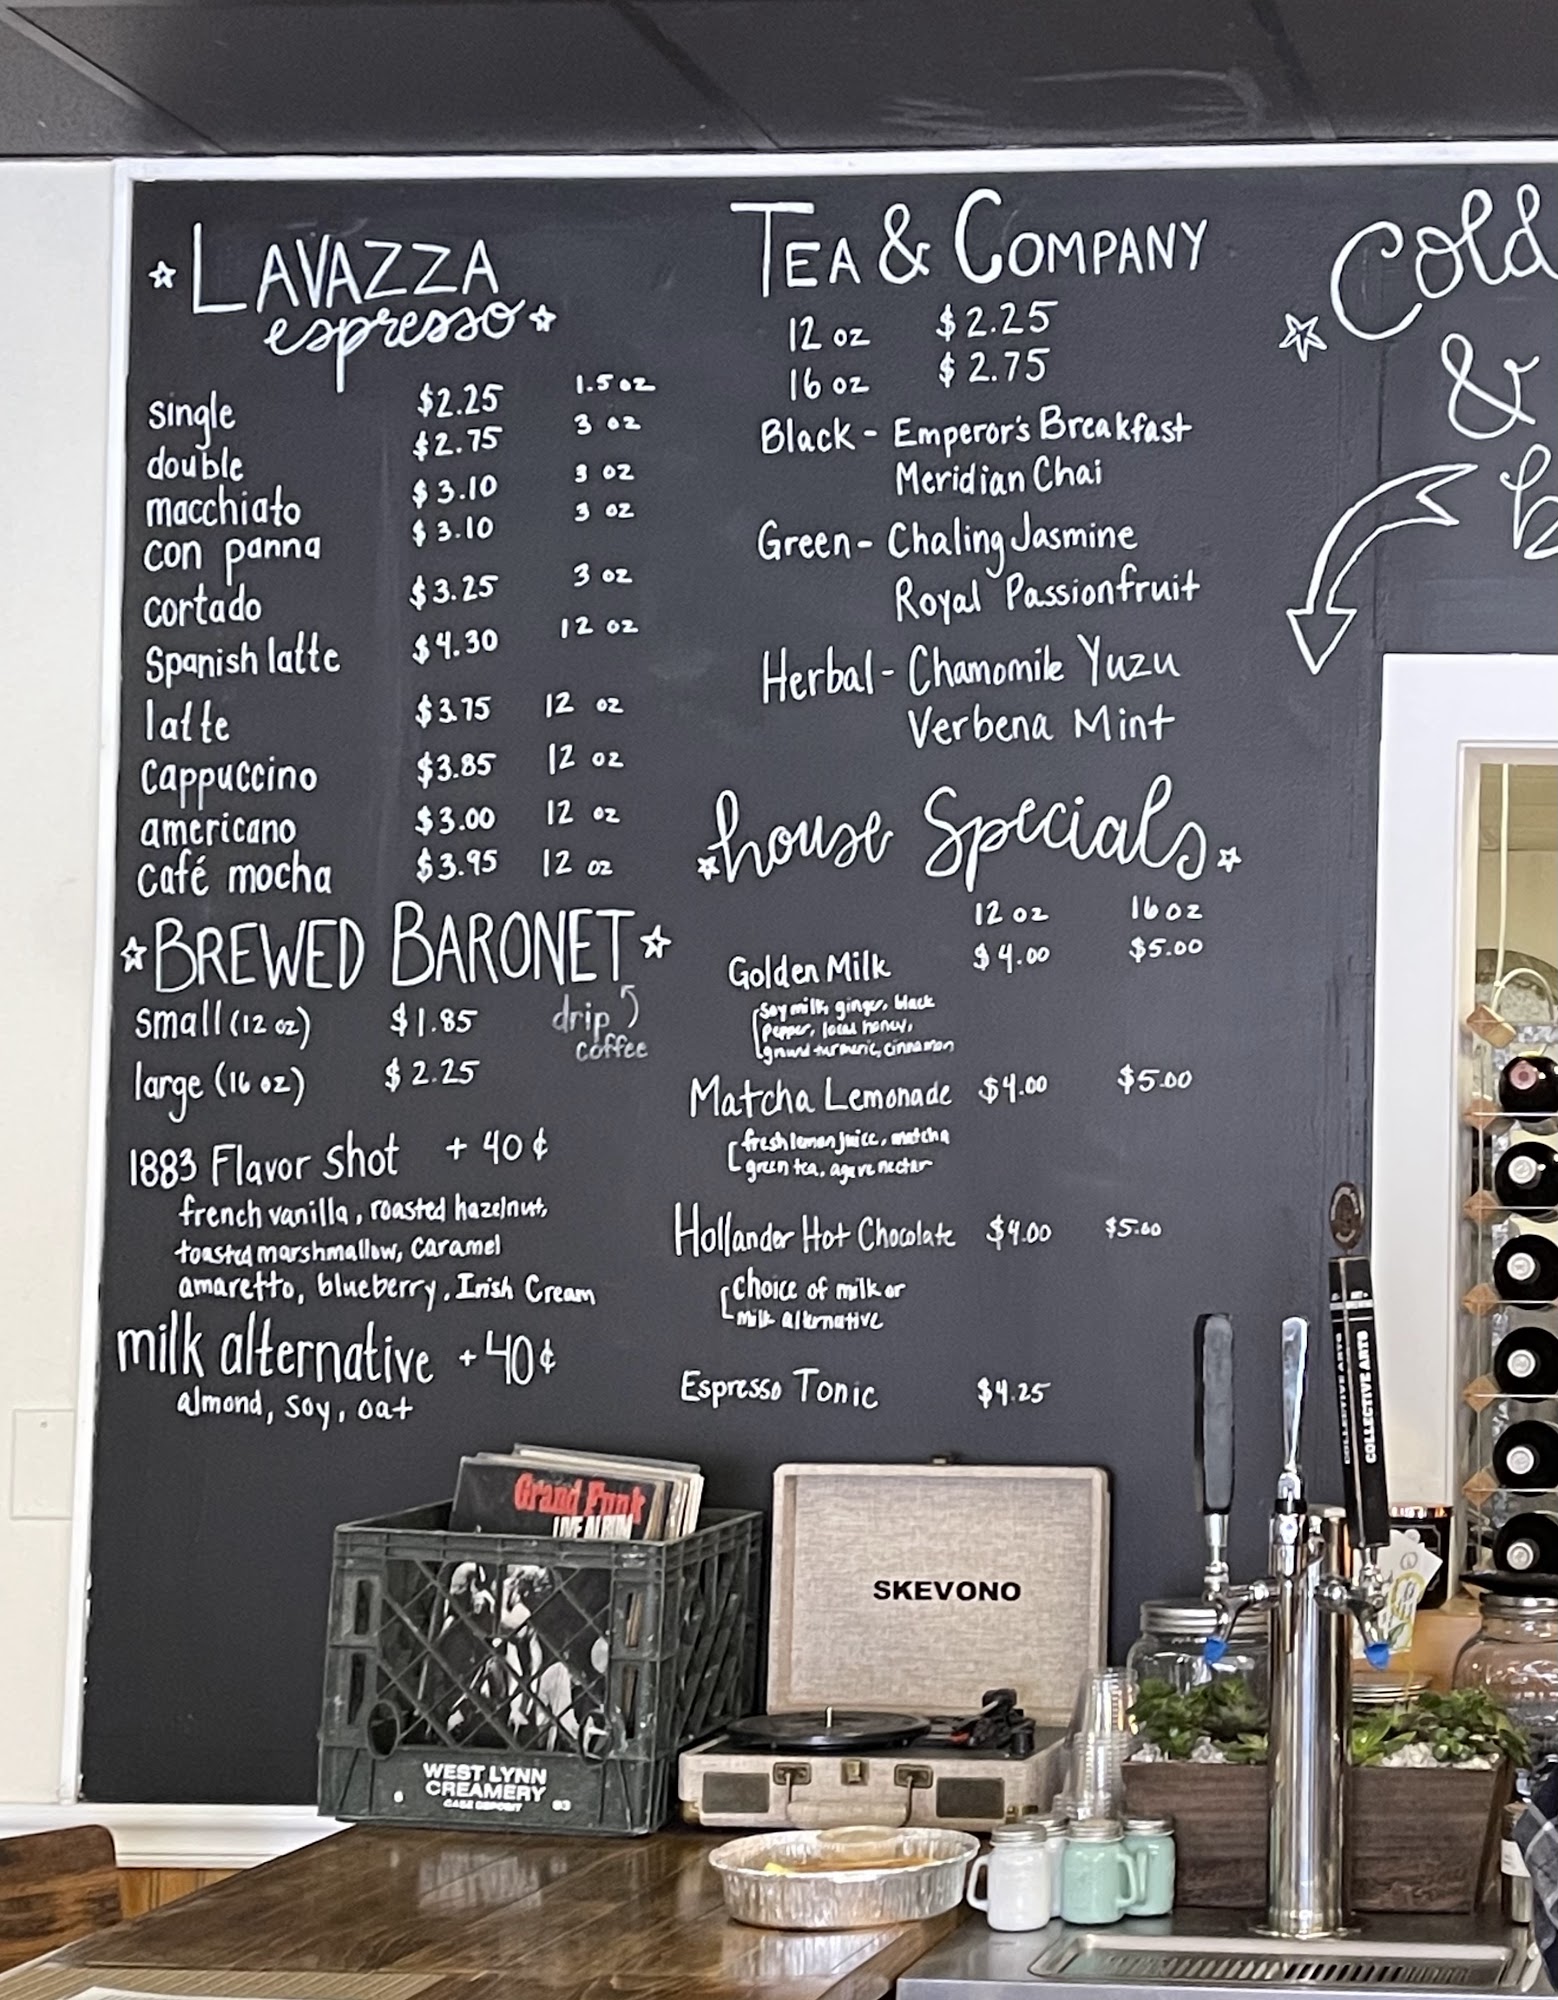 LAVAZZA
espresso
single $2.25 1.5 oz
double $2.75 3 oz
macchiato $3.10 3 oz
con panna $3.10 3 oz
cortado $3.25 3 oz
Spanish latte $4.30 12 oz
latte $3.75 12 oz
Cappuccino $3.85 12 oz
americano $3.00 12 oz
café mocha $3.95 12 oz
BREWED BARONET
small (12 oz) $1.85
drip
coffee
large (16 oz) $2.25
1883 Flavor Shot + 40¢
french vanilla, roasted hazelnut,
toasted marshmallow, caramel
amaretto, blueberry, Irish Cream
milk alternative + 40¢
almond, soy, oat
TEA & COMPANY
12 oz $2.25
16 oz $2.75
Black - Emperor's Breakfast
Meridian Chai
Green - Chaling Jasmine
Royal Passionfruit
Herbal - Chamomile Yuzu
Verbena Mint
house Specials
12 oz 16 oz
Golden Milk $4.00 $5.00
soy milk, ginger, black
pepper, local honey,
ground turmeric, cinnamon
Matcha Lemonade $4.00 $5.00
fresh lemon juice, matcha
green tea, agave nectar
Hollander Hot Chocolate $4.00 $5.00
choice of milk or
milk alternative
Espresso Tonic $4.25
Cold
&
b
Grand Funk
LIVE ALBUM
WEST LYNN
CREAMERY
CASE DEPOSIT
SKEVONO
COLLECTIVE ARTS
COLLECTIVE ARTS